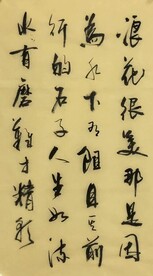 浪花很美那是因
為水下有阻其前
行的石子人生如流
水有磨難才精彩